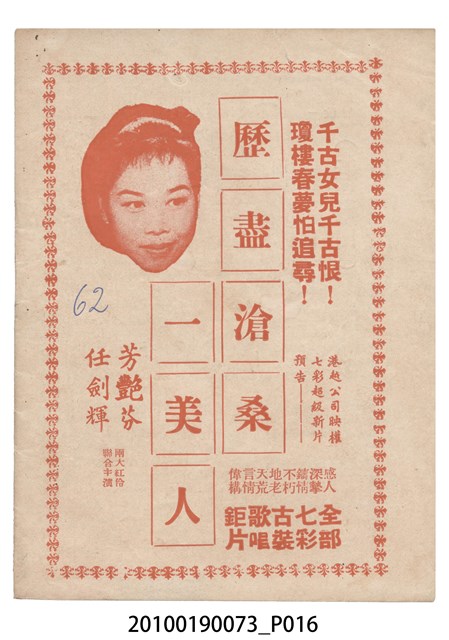 千古女兒千古恨！
瓊樓春夢怕追尋！
港越公司映權
七彩超級新片
預告———
感人
深摯
鑄情
不朽
地老
天荒
言情
偉構
全部
七彩
古裝
歌唱
鉅片
歷盡滄桑
一美人
芳艷芬
任劍輝
兩大紅伶
聯合主演
62
20100190073_P016